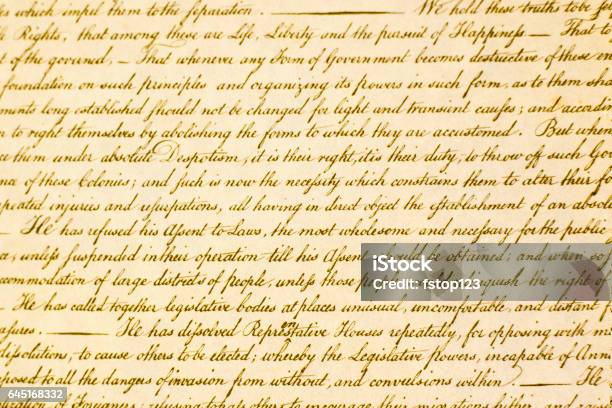 es which impel them to the separation. ——— We hold these truths to be self
le Rights, that among these are Life, Liberty and the pursuit of Happiness — That to
t of the governed, — That whenever any Form of Government becomes destructive of these en
foundation on such principles and organizing its powers in such form, as to them sha
ments long established should not be changed for light and transient causes; and accordin
n to right themselves by abolishing the forms to which they are accustomed. But when
ce them under absolute Despotism, it is their right, it is their duty, to throw off such Go
nce of these Colonies; and such is now the necessity which constrains them to alter their fo
peated injuries and usurpations, all having in direct object the establishment of an absolu
— He has refused his Assent to Laws, the most wholesome and necessary for the public
ce, unless suspended in their operation till his Assent should be obtained; and when so
commodation of large districts of people, unless those relinquish the right of
— He has called together legislative bodies at places unusual, uncomfortable, and distant
asures. ——— He has dissolved Representative Houses repeatedly, for opposing with m
dissolutions, to cause others to be elected; whereby the Legislative powers, incapable of Ann
xposed to all the dangers of invasion from without, and convulsions within. ——— He
refusing to pass others to encourage their migration hither, and
iStock
Credit: fstop123
645168332